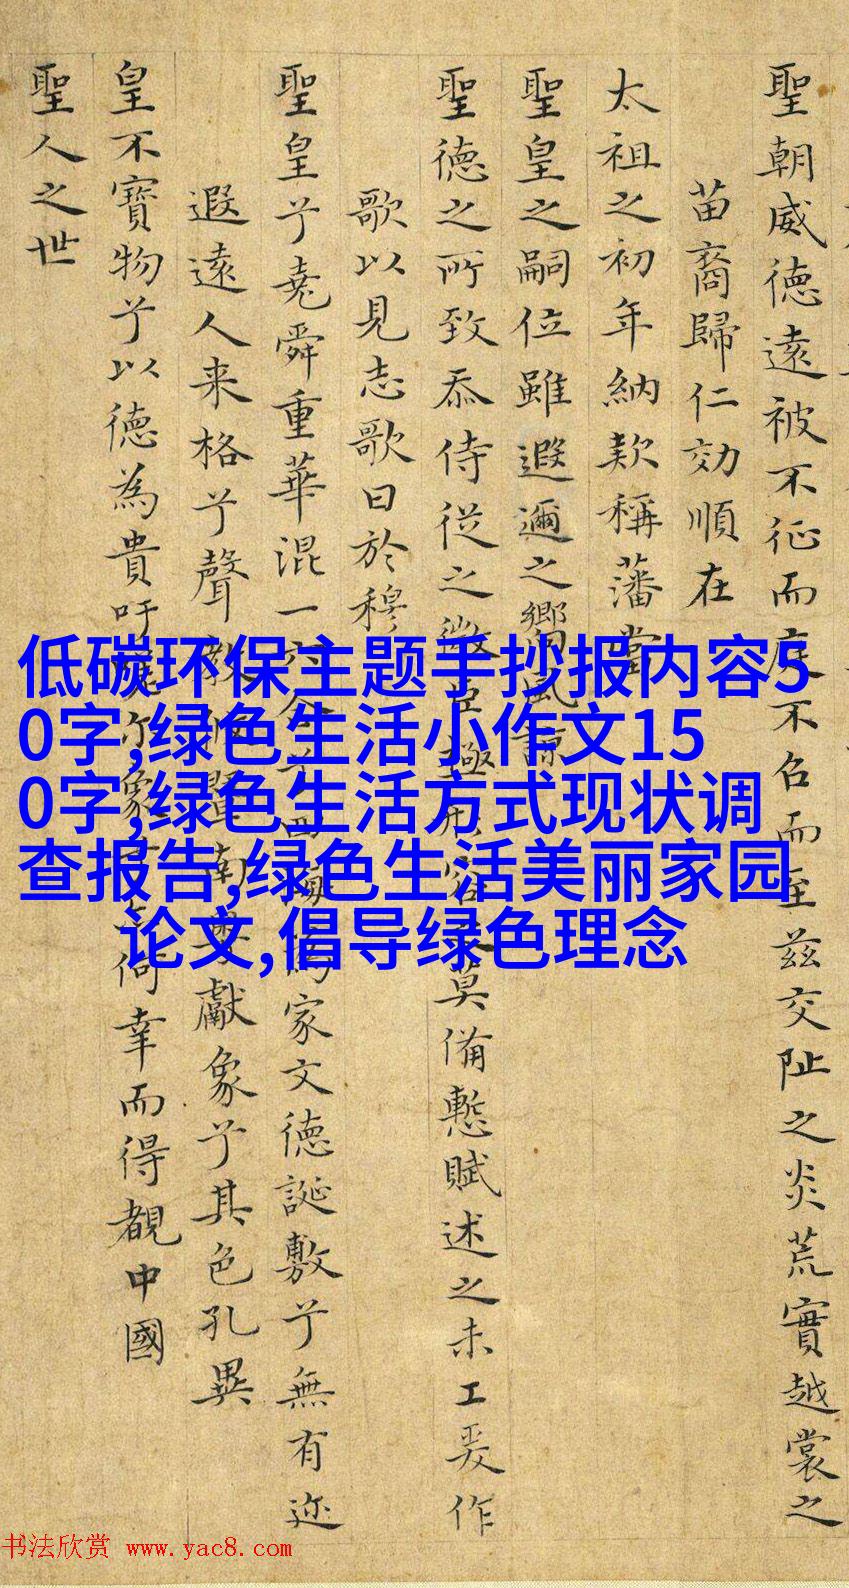 聖朝威徳逺被不征而庭不召而至兹交阯之炎荒實越裳之
苗裔歸仁効順在
太祖之初年納款稱藩當
聖皇之嗣位雖遐邇之鄉風諒
聖徳之所致忝侍從之微臣極形容莫備慙賦述之未工爰作
歌以見志歌曰於穆
聖皇兮堯舜重華混一六合兮四海為家文徳誕敷兮無有迩
遐逺人来格兮聲教被暨南粤獻象兮其色孔異
皇不寶物兮以徳為貴吁嗟象兮何幸而得覩中國
聖人之世
低碳环保主题手抄报内容5
0字,绿色生活小作文15
0字,绿色生活方式现状调
查报告,绿色生活美丽家园
论文,倡导绿色理念
书法欣赏 www.yac8.com